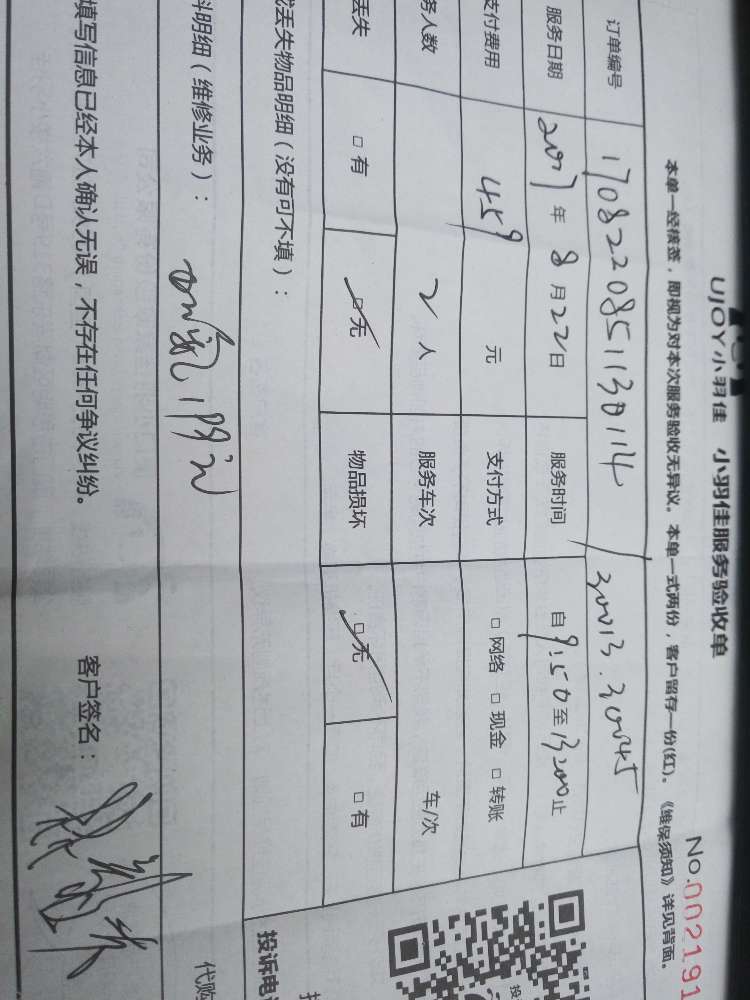 UJOY小羽佳 小羽佳服务验收单
No.002191
本单一经核签，即视为对本次服务验收无异议。本单一式两份，客户留存一份(红)。《维保须知》详见背面。
订单编号 1708220851130114 / 30013.30045
服务日期 2017年8月22日 服务时间 自9:50至13:00止
支付费用 459 元 支付方式 □网络 □现金 □转账
务人数 2 人 服务车次 车/次
丢失 □有 □无 物品损坏 □无 □有
丢失物品明细（没有可不填）：
料明细（维修业务）：
填写信息已经本人确认无误，不存在任何争议纠纷。
客户签名：
投诉电
代购